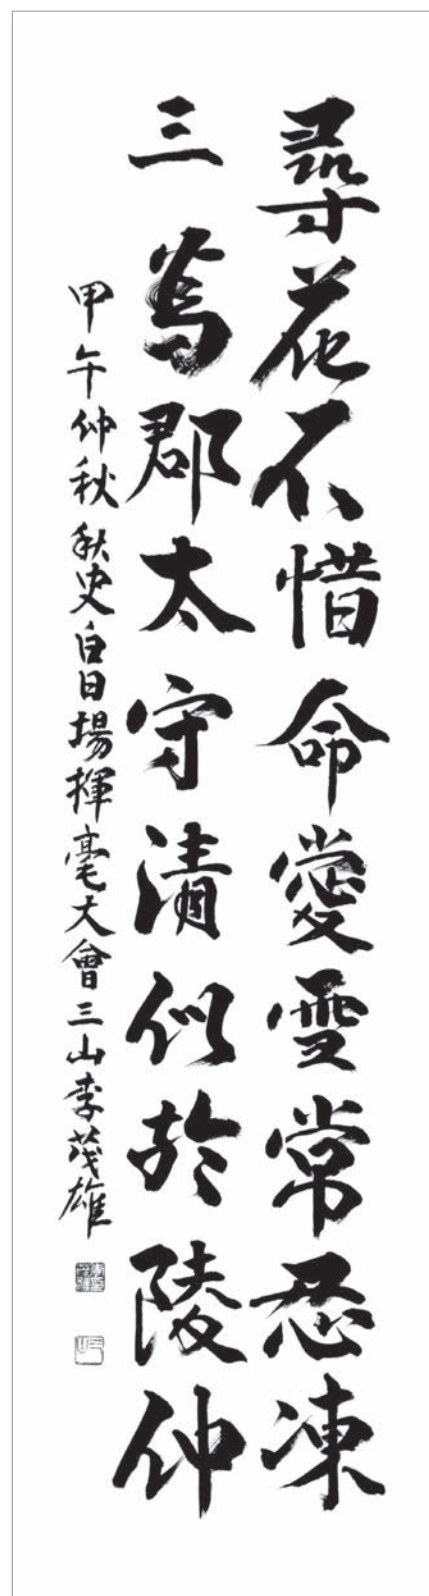 尋花不惜命愛雪常忍凍
三為郡太守清似於陵仲
甲午仲秋秋史白日場揮毫大會三山李茂雄